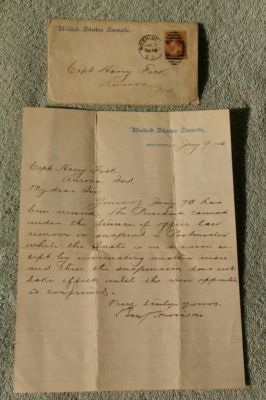 United States Senate.
WASHINGTON
Capt Harry Fisk
Aurora
Ind
United States Senate,
WASHINGTON, Jany 9
Capt Harry Fisk
Aurora Ind.
My dear Sir,
Yours of Jany 7th has
been received. The President cannot
under the tenure of office law
remove or suspend a Postmaster
while the Senate is in session ex-
cept by nominating another man
and then the suspension does not
take effect until the new appointee
is confirmed.
Very truly yours.
Benj Harrison